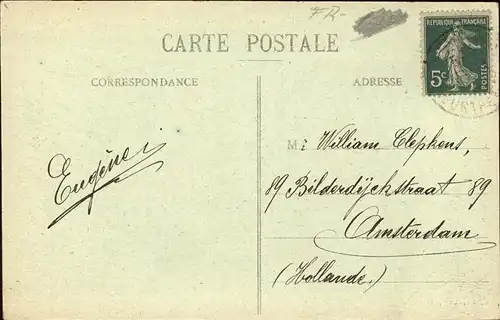 FR-
CARTE POSTALE
REPUBLIQUE FRANÇAISE
5c
POSTES
CORRESPONDANCE
ADRESSE
Eugène
M: William Clephens,
89 Bilderdijckstraat 89
Amsterdam
(Hollande.)